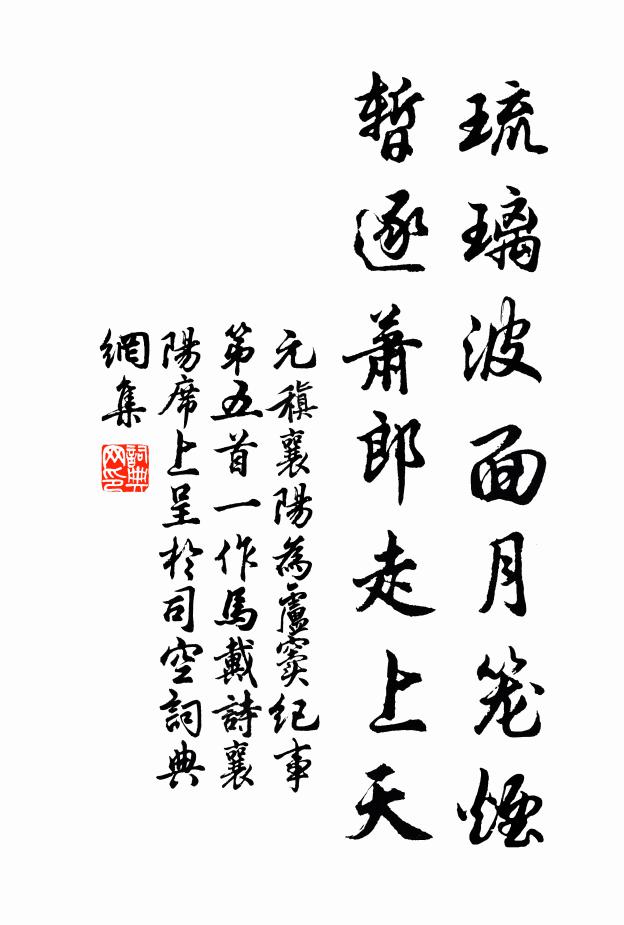 琉璃波面月笼煙
暫逐蕭郎走上天
元稹襄陽為盧竇纪事
第五首一作馬戴詩襄
陽席上呈於司空詞典
網集
詞典
网印